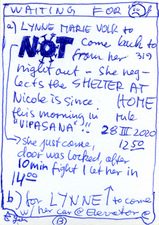 WAITING FOR
a) LYNNE MARIE VOLK to
NOT come back to
from her 319
night out - She neg-
lects the SHELTER AT
Nicole is since. HOME
this morning in rule
"VIPASANA"!! 28 III 2020
she just come, 1250
door was locked, after
10 min fight I let her in
1400
b) for LYNNE ↑ to come
w/ her car @ Elevator @
(13)